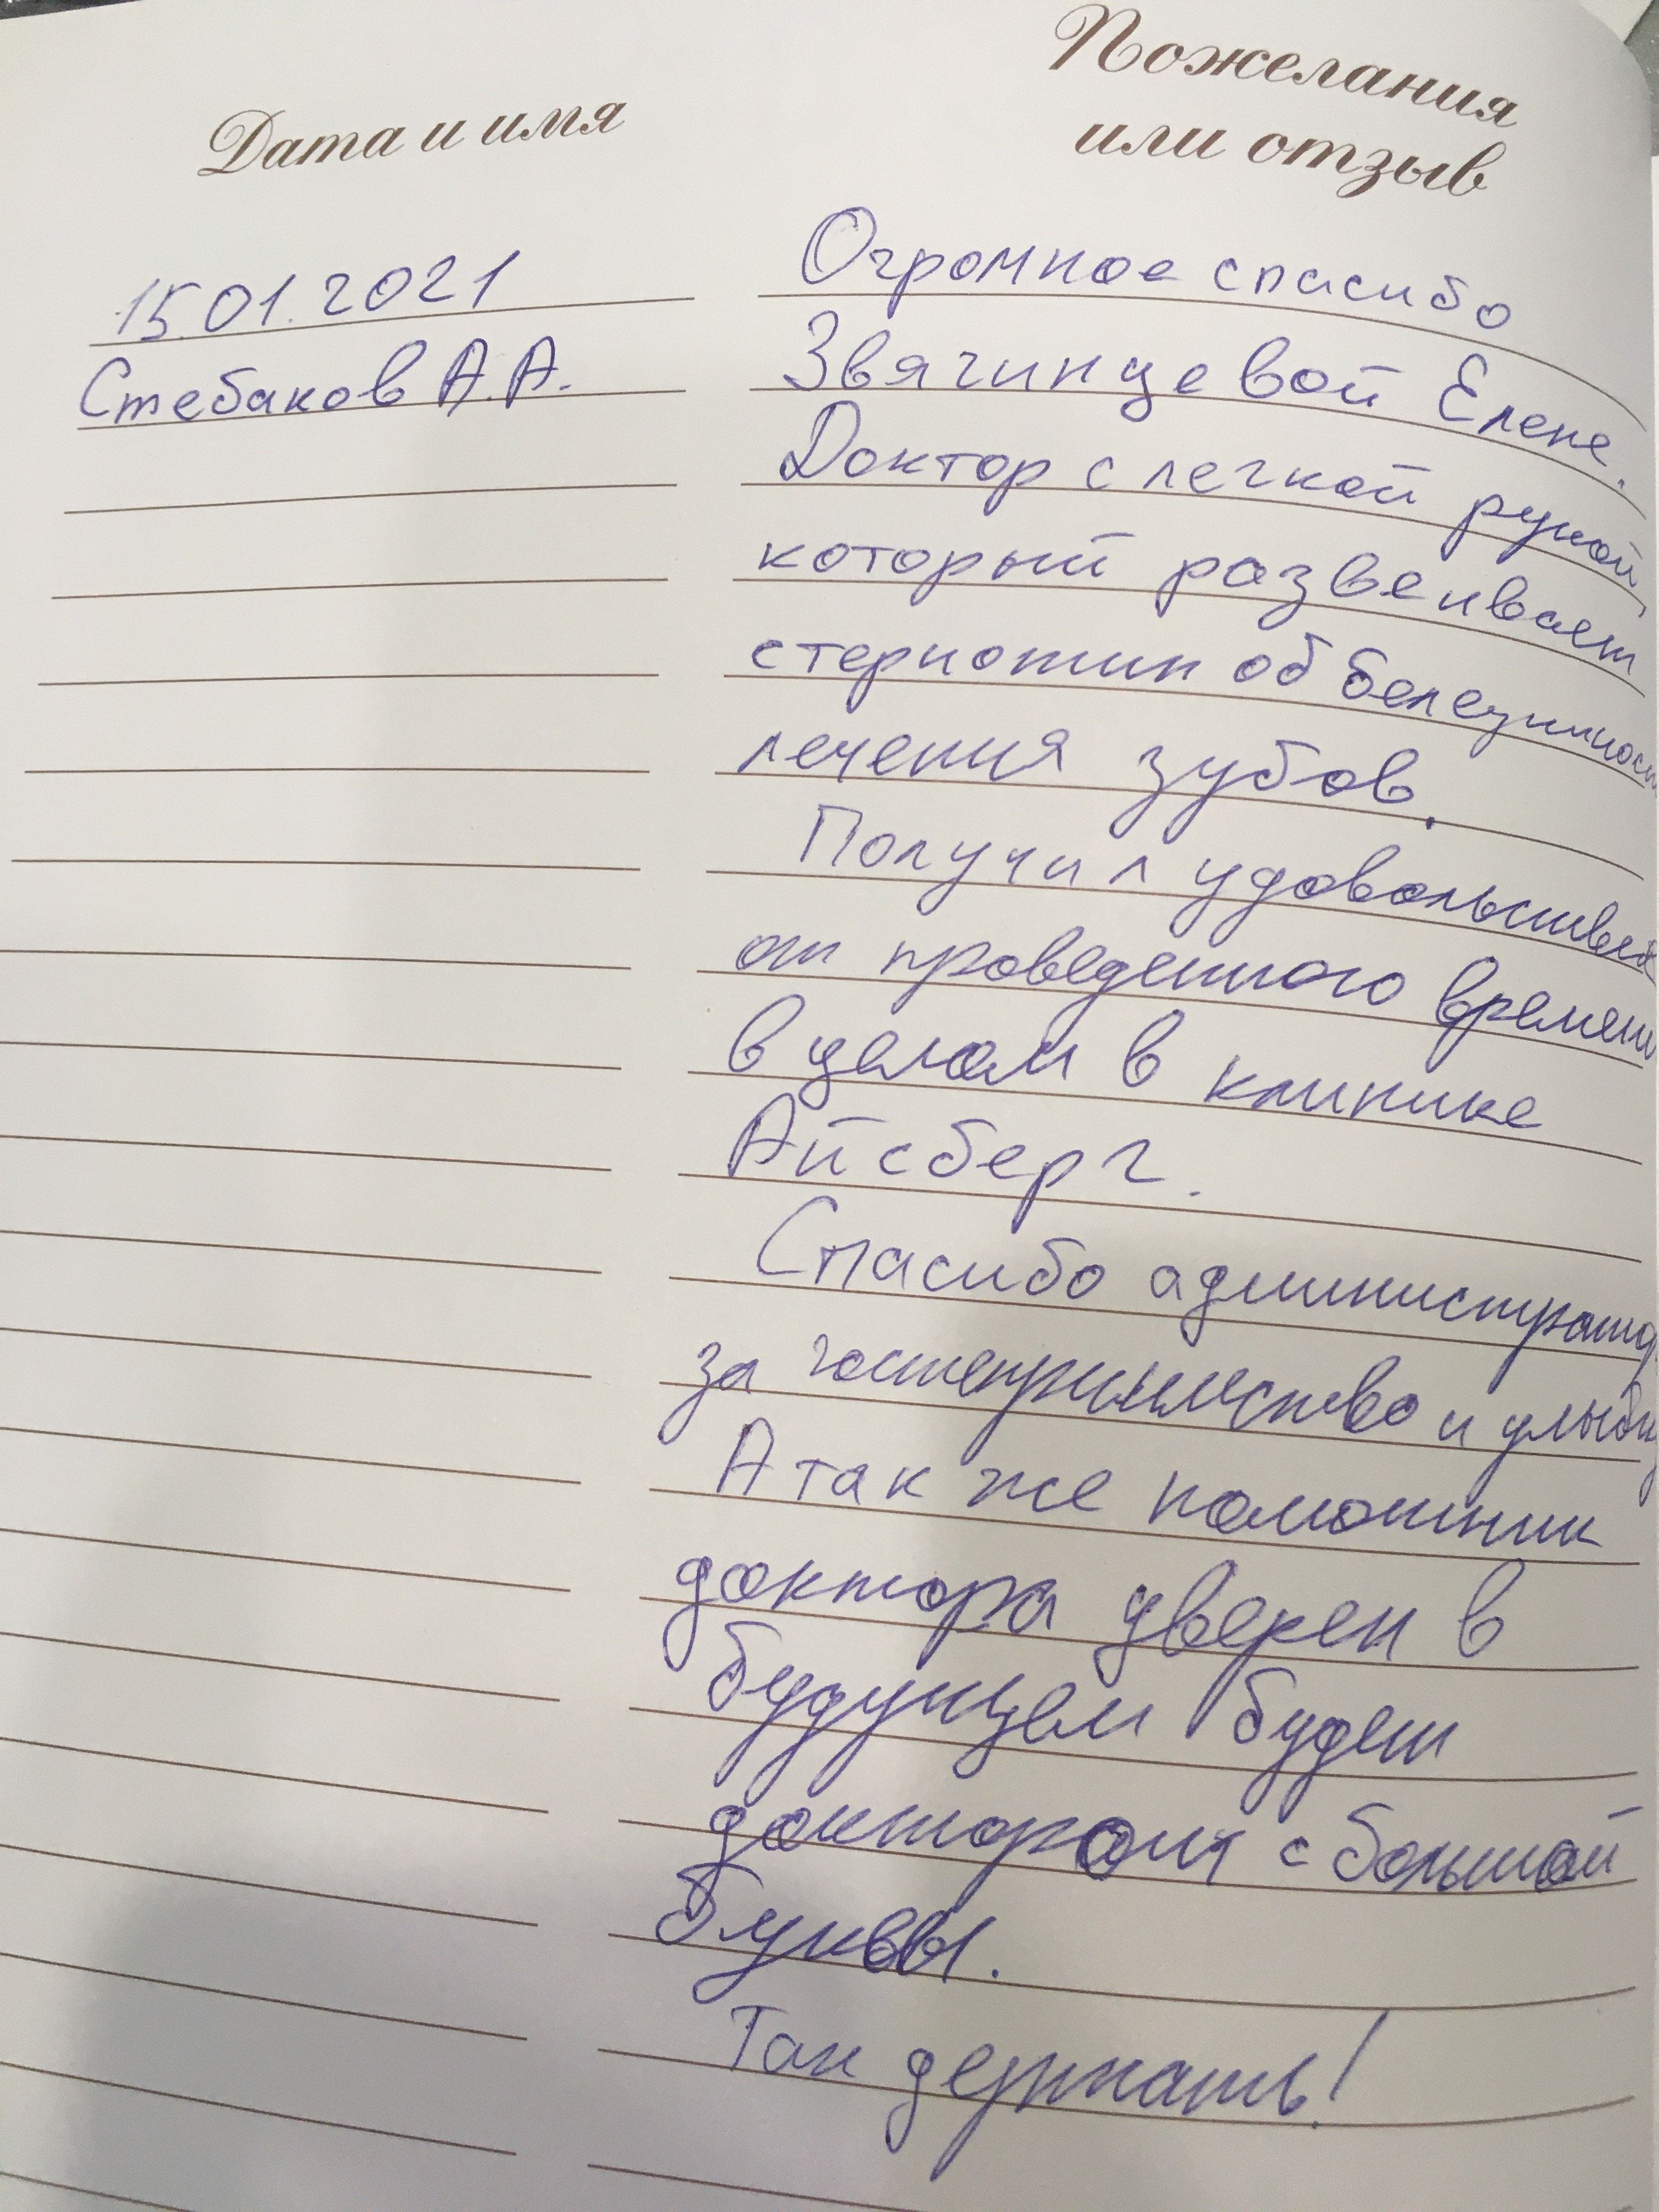 Дата и имя
Пожелания
или отзыв
15.01.2021
Стебаков А.А.
Огромное спасибо
Звягинцевой Елене.
Доктор с легкой рукой,
который развеивает
стериотип об
лечения зубов.
Получил удовольствия
от проведенного времени
в целом в клинике
Айсберг.
Спасибо
за гостеприимство и
А так же помошник
доктора уверен в
будущем будет
доктором с большой
буквы.
Так держать!